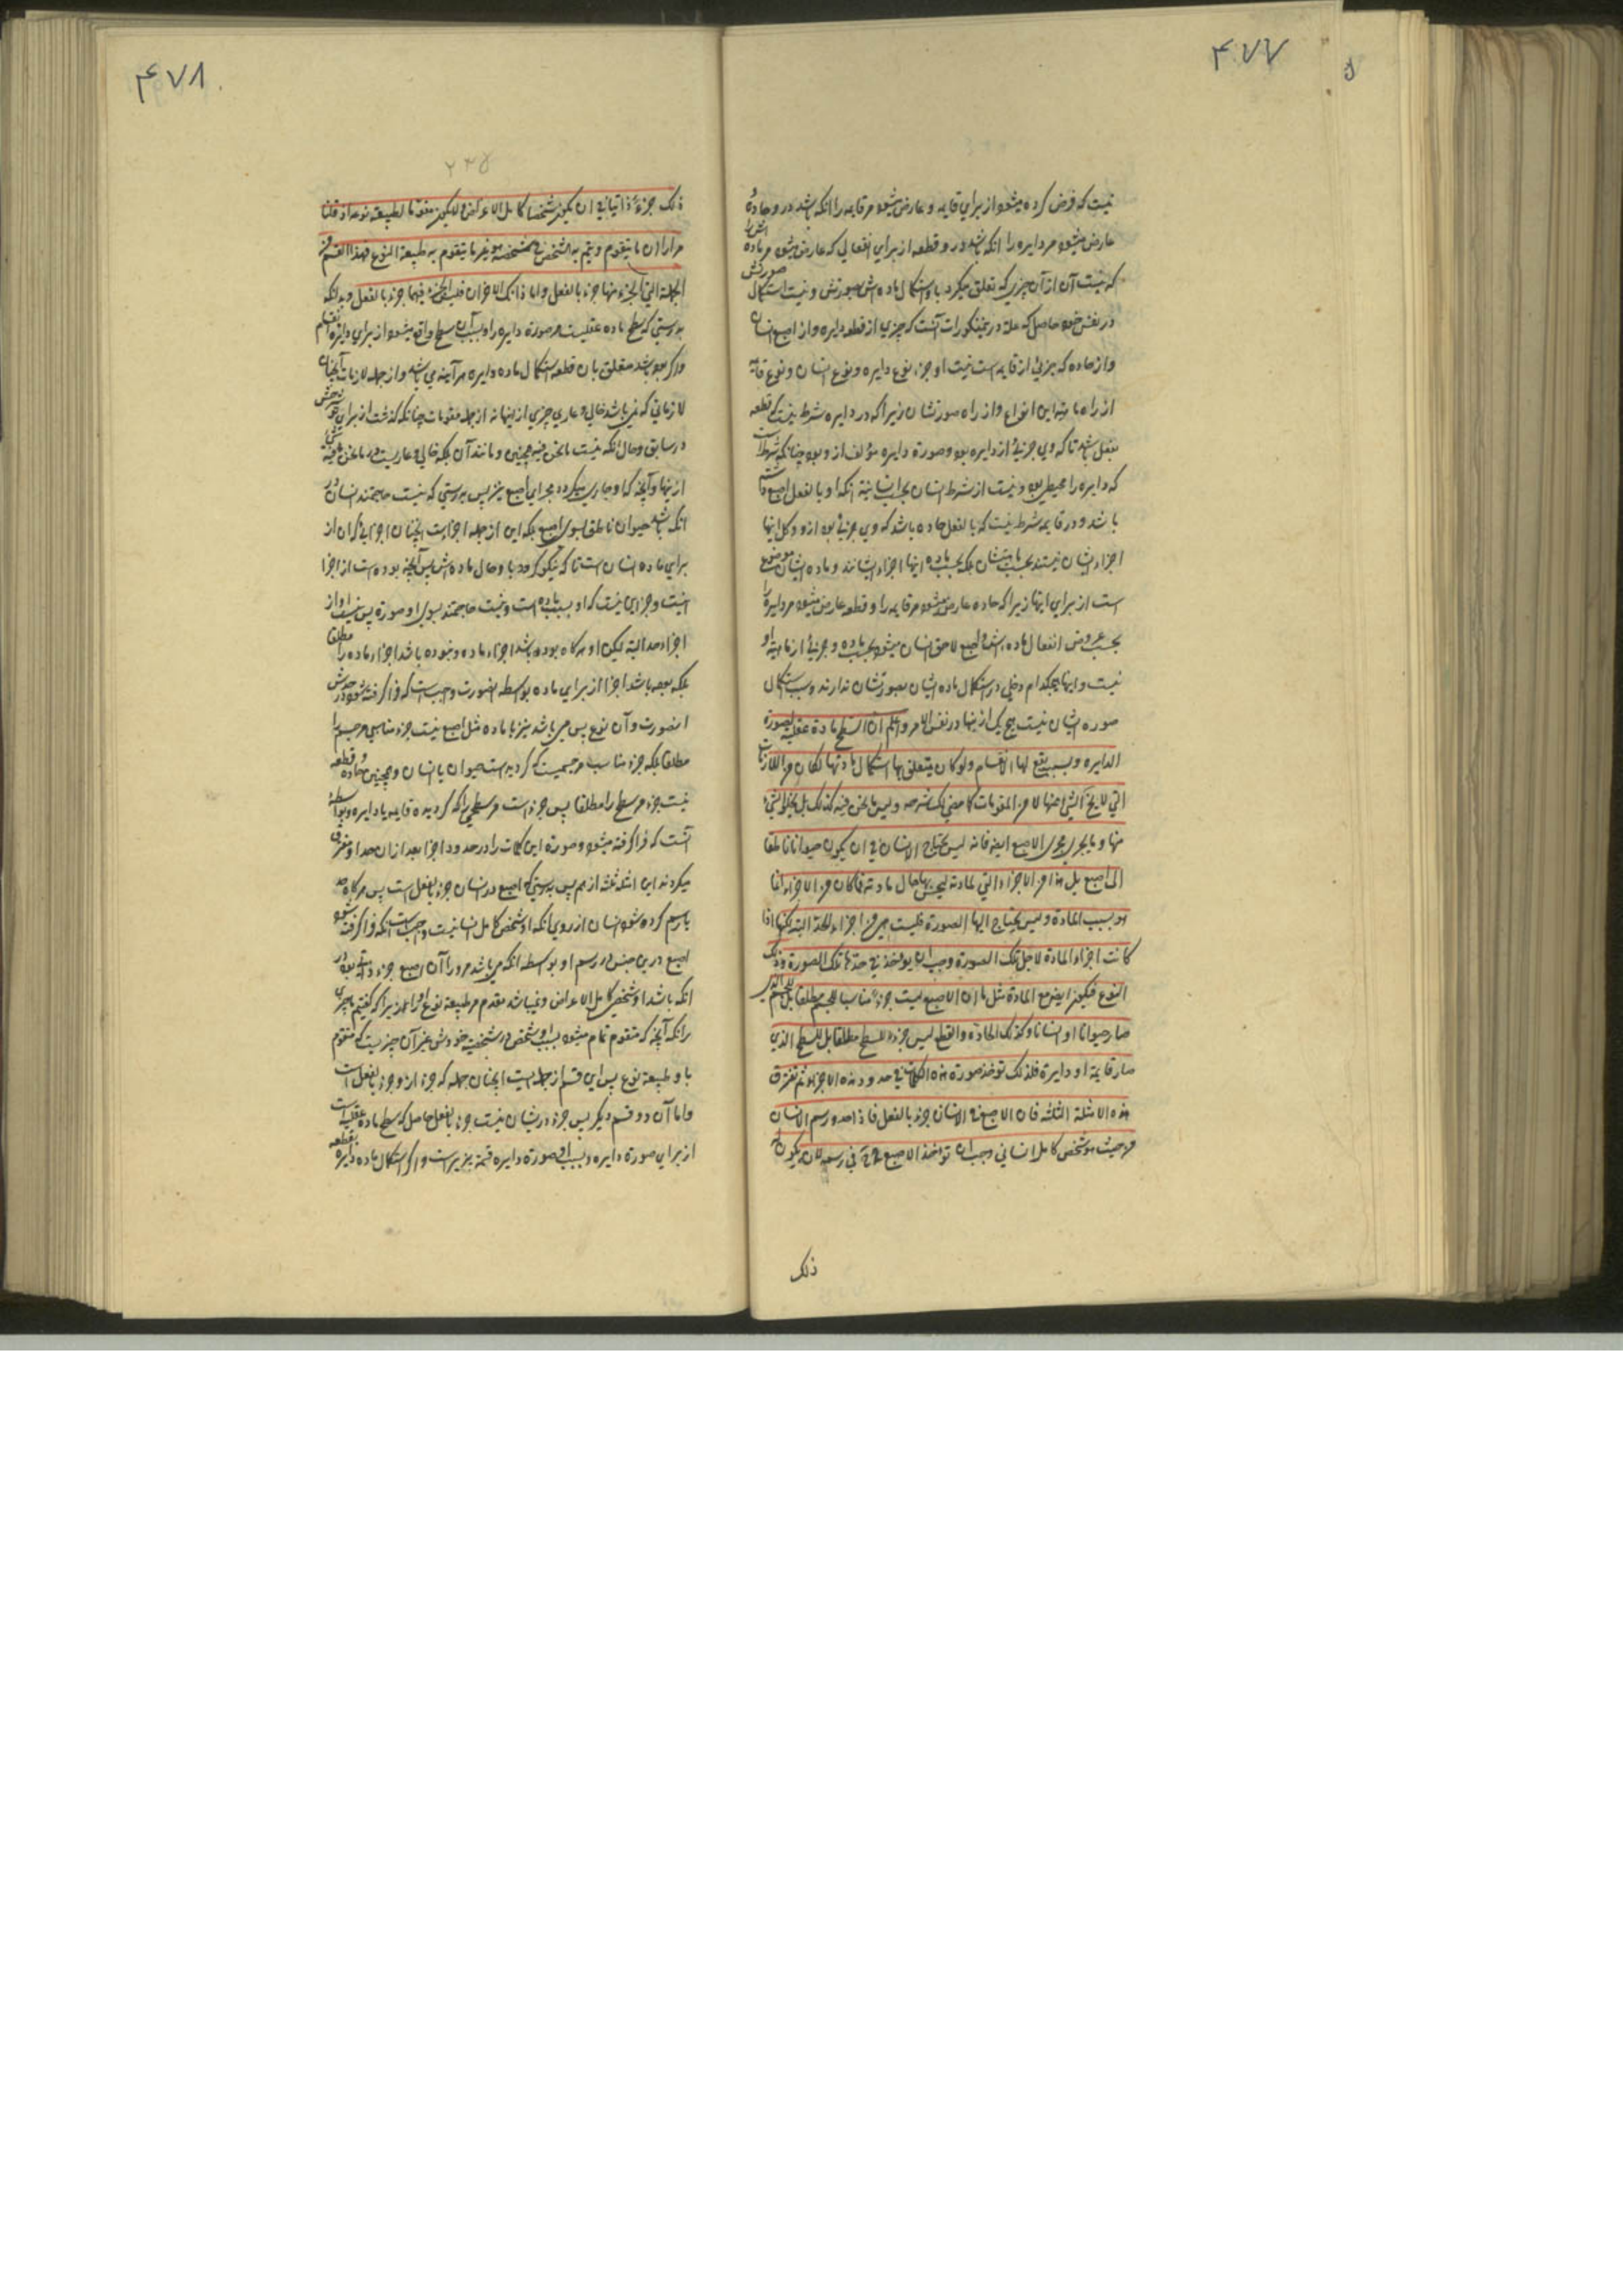 ۴۷۷
نیست که فرض کرده میشود از برای قایمه و عارض میشود مر قایمه را آنکه باشد در و حاده و
عارض میشود مر دایره را آنکه باشد در و قطعه از برای انفعالی که عارض میشود مر ماده اش را
که نیست آن از آن چیزی که تعلق میگیرد باو استکمال ماده اش بصورتش و نیست استکمال صورتش
در نفس خود حاصل که علة درین مذکورات آنست که چیزی از قطعه دایره و از اصبع انسان
و از حاده که جزئی از قایمه است نیست او جزء نوع دایره و نوع انسان و نوع قائمه
از راه ماهیة این انواع و از راه صورتشان زیرا که در دایره شرط نیست که قطعه
بفعل باشد تا که وی جزئی از دایره بود و صورة دایره مؤلف از و بود چنانکه شرط است
که دایره را محیطی بود و نیست از شرط انسان بحسب انسانیة آنکه او بالفعل اصبع داشته
باشد و در قایمه شرط نیست که بالفعل حاده باشد که وی جزئی بود ازو و کل اینها
اجزاء ایشان نیستند بحسب ماهیتشان بلکه بحسب ماده اینها اجزاء ایشانند و ماده ایشان موضوع
است از برای اینها زیرا که حاده عارض میشود مر قایمه را و قطعه عارض میشود مر دایره را
بحسب عروض انفعال ماده اش و اصبع لاحق انسان میشود بحسب ماده و جزئی از ماهیة او
نیست و اینها هیچکدام دخلی در استکمال ماده ایشان بصورتشان ندارند و سبب استکمال
صوره ایشان نیست هیچ یک از اینها در نفس الامر و اعلم ان السطح مادة عقلیة لصورة
الدایره و بسببه یقع لها الانقسام ولو کان یتعلق بها استکمال مادتها لکان من اللازمات
التی لا یخ الشی عنها لا من المقومات کما مضی لک شرحه و لیس ما نحن فیه کذلک بل یخلو الشیء
منها و ما یجری مجری الاصبع ایضه فانه لیس یحتاج الانسان فی ان یکون حیوانا ناطقا
الی اصبع بل هذا من الاجزاء التی لمادته لیحسن بها حال مادته فما کان من الاجزاء انما
هو بسبب المادة و لیس یحتاج الیها الصورة فلیست هی من اجزاء الحد البتة لکنها اذا
کانت اجزاء المادة لاجل تلک الصورة وجب ان یوخذ فی حدها تلک الصورة و ذلک
النوع فیکون ایضه مع المادة مثل ما ان الاصبع لیست جزءً مناسبا للجسم مطلقا بل للجسم الذی
صار حیوانا او انسانا و کذلک الحادة و القطع لیس جزءا للسطح مطلقا بل للسطح الذی
صار قایمة او دایرة فلذلک توخذ صورة هذه الکلیات فی حدود هذه الاجزاء ثم تفترق
هذه الامثلة الثلثة فان الاصبع فی الانسان جزء بالفعل فاذا حد و رسم الانسان
من حیث هو شخص کامل انسانی وجب ان توخذ الاصبع ح فی رسمه لان یکون له
ذلک
۴۷۸
۲۳۵
ذلک جزءً ذاتیا فی ان یکون شخصا کامل الاعراض و لا یکون مقوما لطبیعة نوعه اذ قلنا
مرارا ان ما یتقوم و یتم به الشخص فی شخصیته هو غیر ما یتقوم به طبیعة النوع فهذا القسم من
الجملة التی الجزء منها جزء بالفعل و اما ذانک الاخران فلیس الجزء فیهما جزء بالفعل و بدانکه
بدرستی که سطح ماده عقلیست مر صورة دایره را و بسبب آن سطح واقع میشود از برای دایره انقسام
و اگر بود باشد متعلق بان قطعه استکمال ماده دایره هر آینه می باشد و از جمله لازمات آنچنان
لازماتی که نمی باشد خالی و عاری چیزی از اینها نه از جمله مقومات چنانکه گذشت از برای تو شرحش
در سابق و حال آنکه نیست ما نحن فیه همچنین و مانند آن بلکه خالی و عاریست شی ما نحن فیه
از اینها و آنچه که او جاری میگردد مجرای اصبع نیز پس بدرستی که نیست حاجتمند انسان در
آنکه باشد حیوان ناطق بسوی اصبع بلکه این از جمله اجزایست آنچنان اجزائی که آن از
برای ماده انسان است تا که نیکو گردد باو حال ماده اش پس آنچه بوده است از اجزا
نیست و جز این نیست که او بسبب ماده است و نیست حاجتمند بسوی او صورة پس نیست او از
اجزاء حد البتة لیکن او هر گاه بوده باشد اجزاء ماده و نبوده باشد اجزاء ماده را مطلقا
بلکه بوده باشد اجزا از برای ماده بواسطه انصورت واجبست که فرا گرفته شود در حدش
انصورت و آن نوع پس می باشد نیز با ماده مثل اصبع نیست جزء مناسبی مر جسم را
مطلقا بلکه جزء مناسب مر جسمیست که گردیده است حیوان یا انسان و همچنین حاده و قطعه
نیست جزء مر سطح را مطلقا پس جزء است مر سطحی را که گردیده قایمه یا دایره و بواسطه
آنست که فرا گرفته میشود صورة این کلیات را در حدود اجزا بعد از ان جدا و متفرق
میگردند این امثله ثلثه از هم پس بدرستی که اصبع در انسان جزء بفعل است پس هر گاه حد
یا رسم کرده شود انسان از روی آنکه او شخص کامل انسانیست واجب است آنکه فرا گرفته شود
اصبع درین جنس در رسم او بواسطه آنکه می باشد مر او را آن اصبع جزء ذاتی بود در
آنکه باشد او شخص کامل الاعراض و نمی باشد مقوم مر طبیعة نوع او را زیرا که گفتیم ما چیزی
را آنکه آنچه که متقوم تمام میشود بسبب او شخص در شخصیت خودش غیر آن چیزیست که متقوم
باو طبیعة نوع پس این قسم از جمله ایست آنچنان جمله که جزء ازو جزء بالفعل است
و اما آن دو قسم دیگر پس جزء در ایشان نیست جزء بالفعل حاصل که سطح ماده عقلیست
از برای صورة دایره و بسبب او صورة دایره قسمة پذیرست و اگر استکمال ماده دایره بقطعه